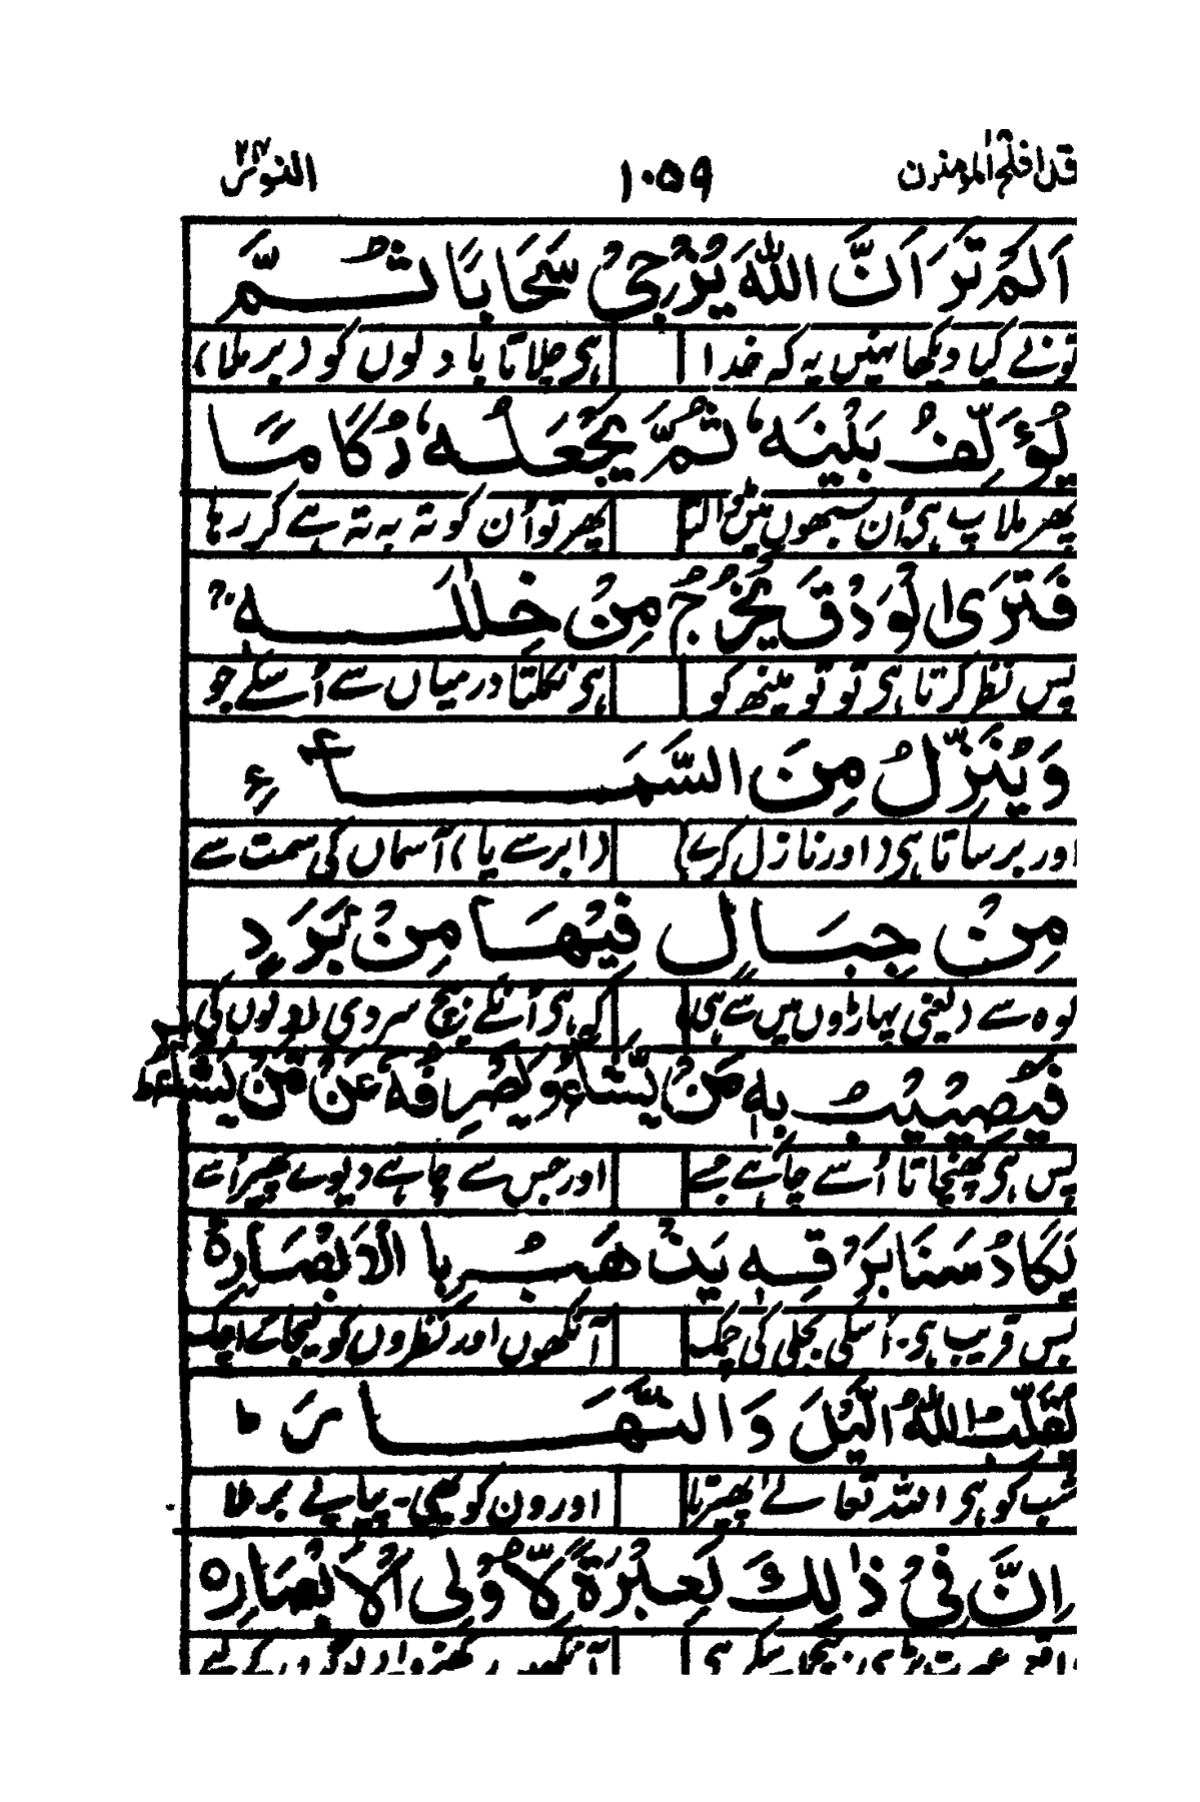 قد افلح المؤمنون ۱۰۵۹ النور ۲۴
اَلَمْ تَرَ اَنَّ اللّٰهَ يُزْجِيْ سَحَابًا ثُمَّ
تونے کیا دیکھا نہیں یہ کہ خدا ہی چلاتا بادلوں کو (برملا)
يُؤَلِّفُ بَيْنَهٗ ثُمَّ يَجْعَلُهٗ رُكَامًا
پھر ملاپ ہی اُن سبھوں میں ڈالتا پھر تو اُن کو تہ بہ تہ ہے کر رہا
فَتَرَى الْوَدْقَ يَخْرُجُ مِنْ خِلٰلِهٖ
پس نظر کرتا ہی تو تو مینھ کو ہی نکلتا درمیاں سے اُسکے جو
وَيُنَزِّلُ مِنَ السَّمَآءِ
اور برساتا ہی (اور نازل کرے) (ابر سے یا) آسماں کی سمت سے
مِنْ جِبَالٍ فِيْهَا مِنْۢ بَرَدٍ
کوہ سے (یعنی پہاڑوں میں سے ہی) کہ ہی اُنکے بیچ سردی اولوں کی
فَيُصِيْبُ بِهٖ مَنْ يَّشَآءُ وَيَصْرِفُهٗ عَنْ مَّنْ يَّشَآءُ ط
پس ہی پہنچاتا اُسے چاہے جسے اور جس سے چاہے دیوے پھیر اُسے
يَكَادُ سَنَا بَرْقِهٖ يَذْهَبُ بِالْاَبْصَارِ ۝
بس قریب ہی۔ اُسکی بجلی کی چمک آنکھوں اور نظروں کو لیجائے اچک
يُقَلِّبُ اللّٰهُ الَّيْلَ وَالنَّهَارَ ط
شب کو ہی اللہ تعالےٰ پھیرتا اور دن کو بھی۔ پیاپے برملا
اِنَّ فِيْ ذٰلِكَ لَعِبْرَةً لِّاُولِى الْاَبْصَارِ ۝